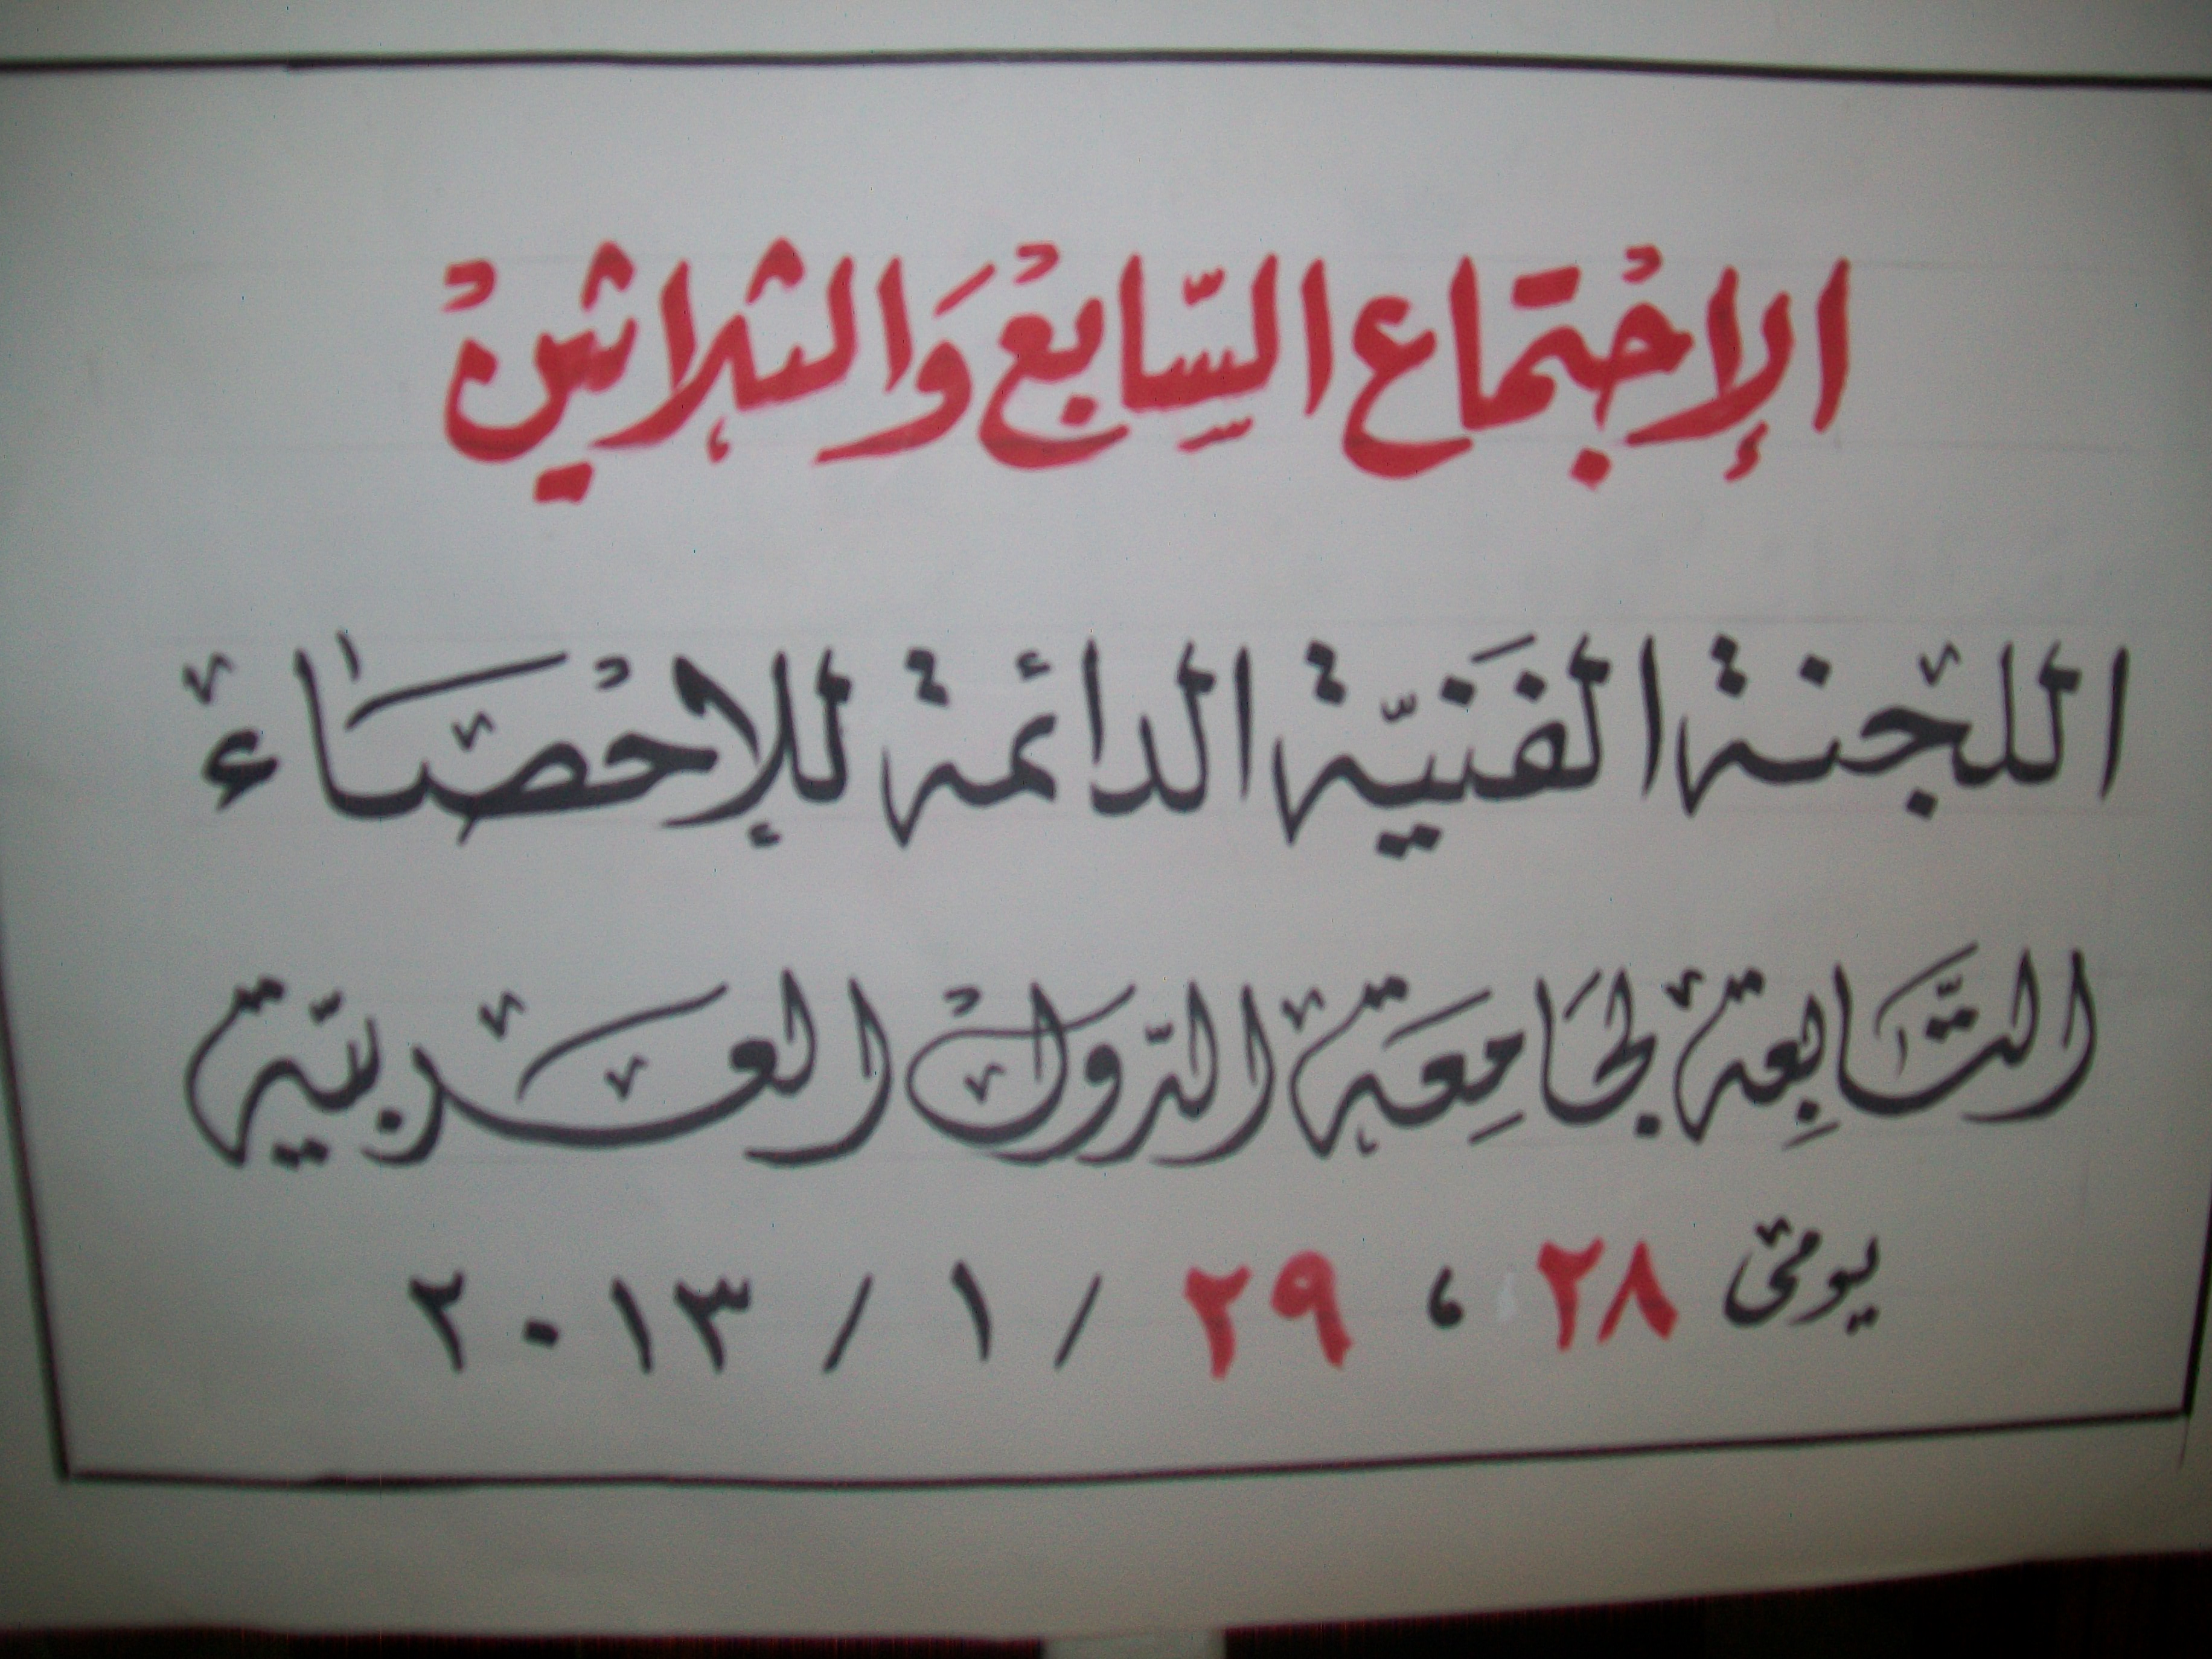 الإجتماع السابع والثلاثين
اللجنة الفنية الدائمة للإحصاء
التابعة لجامعة الدول العربية
يومى ٢٨ ، ٢٩ / ١ / ٢٠١٣